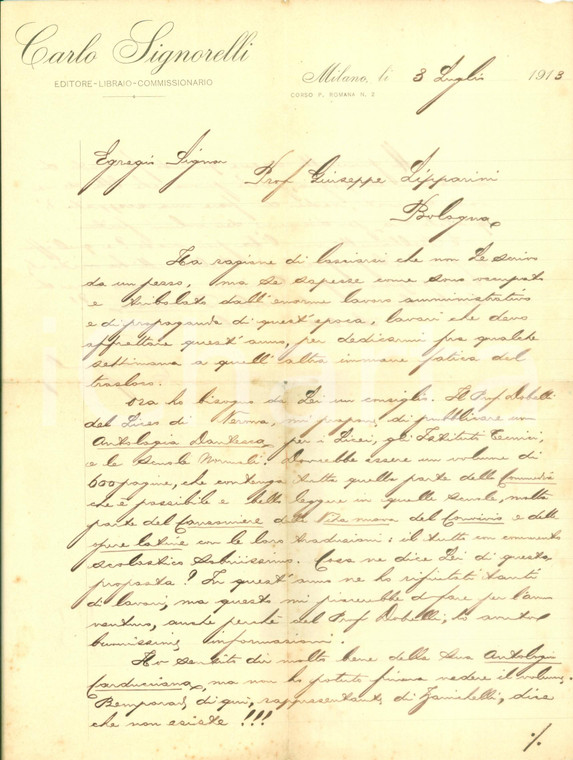 Carlo Signorelli
EDITORE-LIBRAIO-COMMISSIONARIO
Milano, li 3 Luglio 1913
CORSO P. ROMANA N. 2
Egregio Signor
Prof Giuseppe Lipparini
Bologna
Ha ragione di lagnarsi che non Le scrivo
da un pezzo, ma se sapesse come sono occupato
e tribolato dall'enorme lavoro amministrativo
e di propaganda di quest'epoca, lavori che devo
affrettare quest'anno, per dedicarmi fra qualche
settimana a quell'altra immane fatica del
trasloco.
Ora ho bisogno da Lei un consiglio. Il Prof Dobelli
del Liceo di Verona, mi propone di pubblicare un
Antologia Dantesca per i Licei, gli Istituti Tecnici,
e le Scuole Normali. Dovrebbe essere un volume di
600 pagine, che contenga tutta quella parte della Commedia
che è possibile e bello leggere in quelle scuole, molta
parte del Canzoniere della Vita nuova del Convivio e delle
opere latine con le loro traduzioni: il tutto con commento
scolastico sobriissimo. Cosa ne dice Lei di questa
proposta? In quest'anno ne ho rifiutati tanti
di lavori, ma questo mi piacerebbe di fare per l'anno
venturo, anche perchè del Prof Dobelli, ho avuto
buonissime informazioni.
Ho sentito dir molto bene della Sua Antologia
Carducciana, ma non ho potuto finora vedere il volume.
Bemporad di qui, rappresentante di Zanichelli, dice
che non esiste!!!
./.